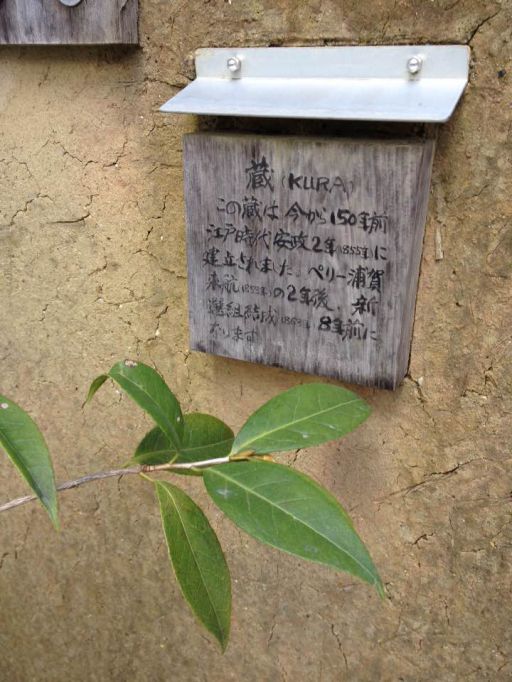 蔵(KURA)
この蔵は今から150年前
江戸時代安政2年(1855年)に
建立されました。ペリー浦賀
来航(1853年)の2年後、新
撰組結成(1863年)8年前に
なります